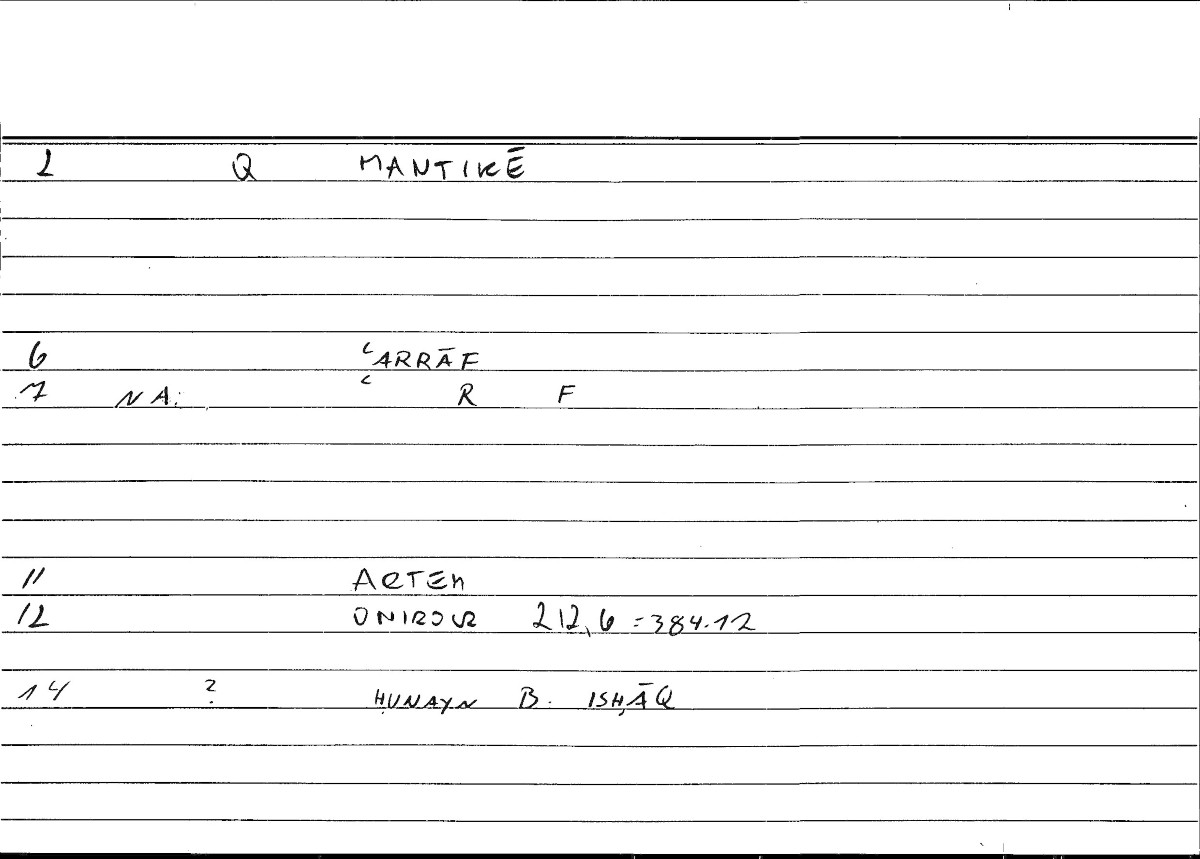 1 Q MANTIKĒ
6 ʿARRĀF
7 NA: ʿ R F
11 ARTEM
12 ONIROCR 212,6 = 384.12
14 ? ḤUNAYN B. ISḤĀQ